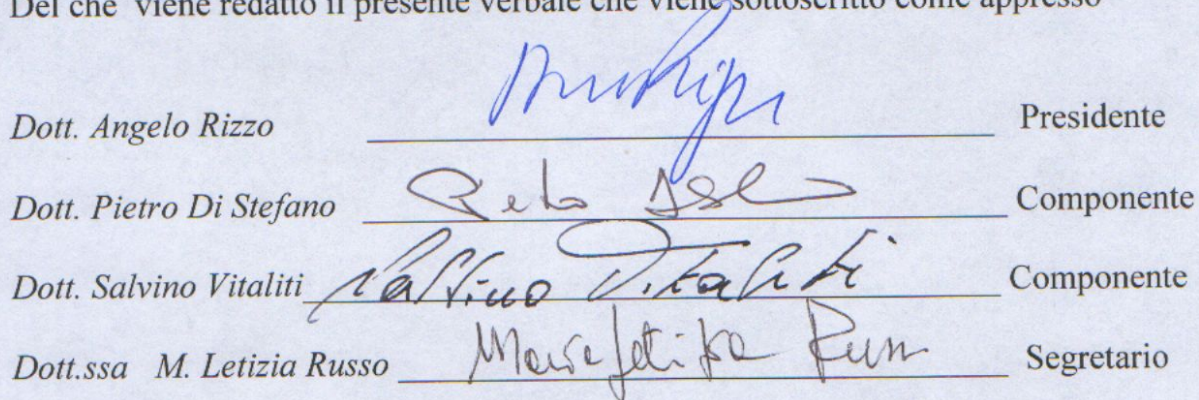 Del che viene redatto il presente verbale che viene sottoscritto come appresso
Dott. Angelo Rizzo Presidente
Dott. Pietro Di Stefano Componente
Dott. Salvino Vitaliti Salvino Vitaliti Componente
Dott.ssa M. Letizia Russo Maria Letizia Russo Segretario